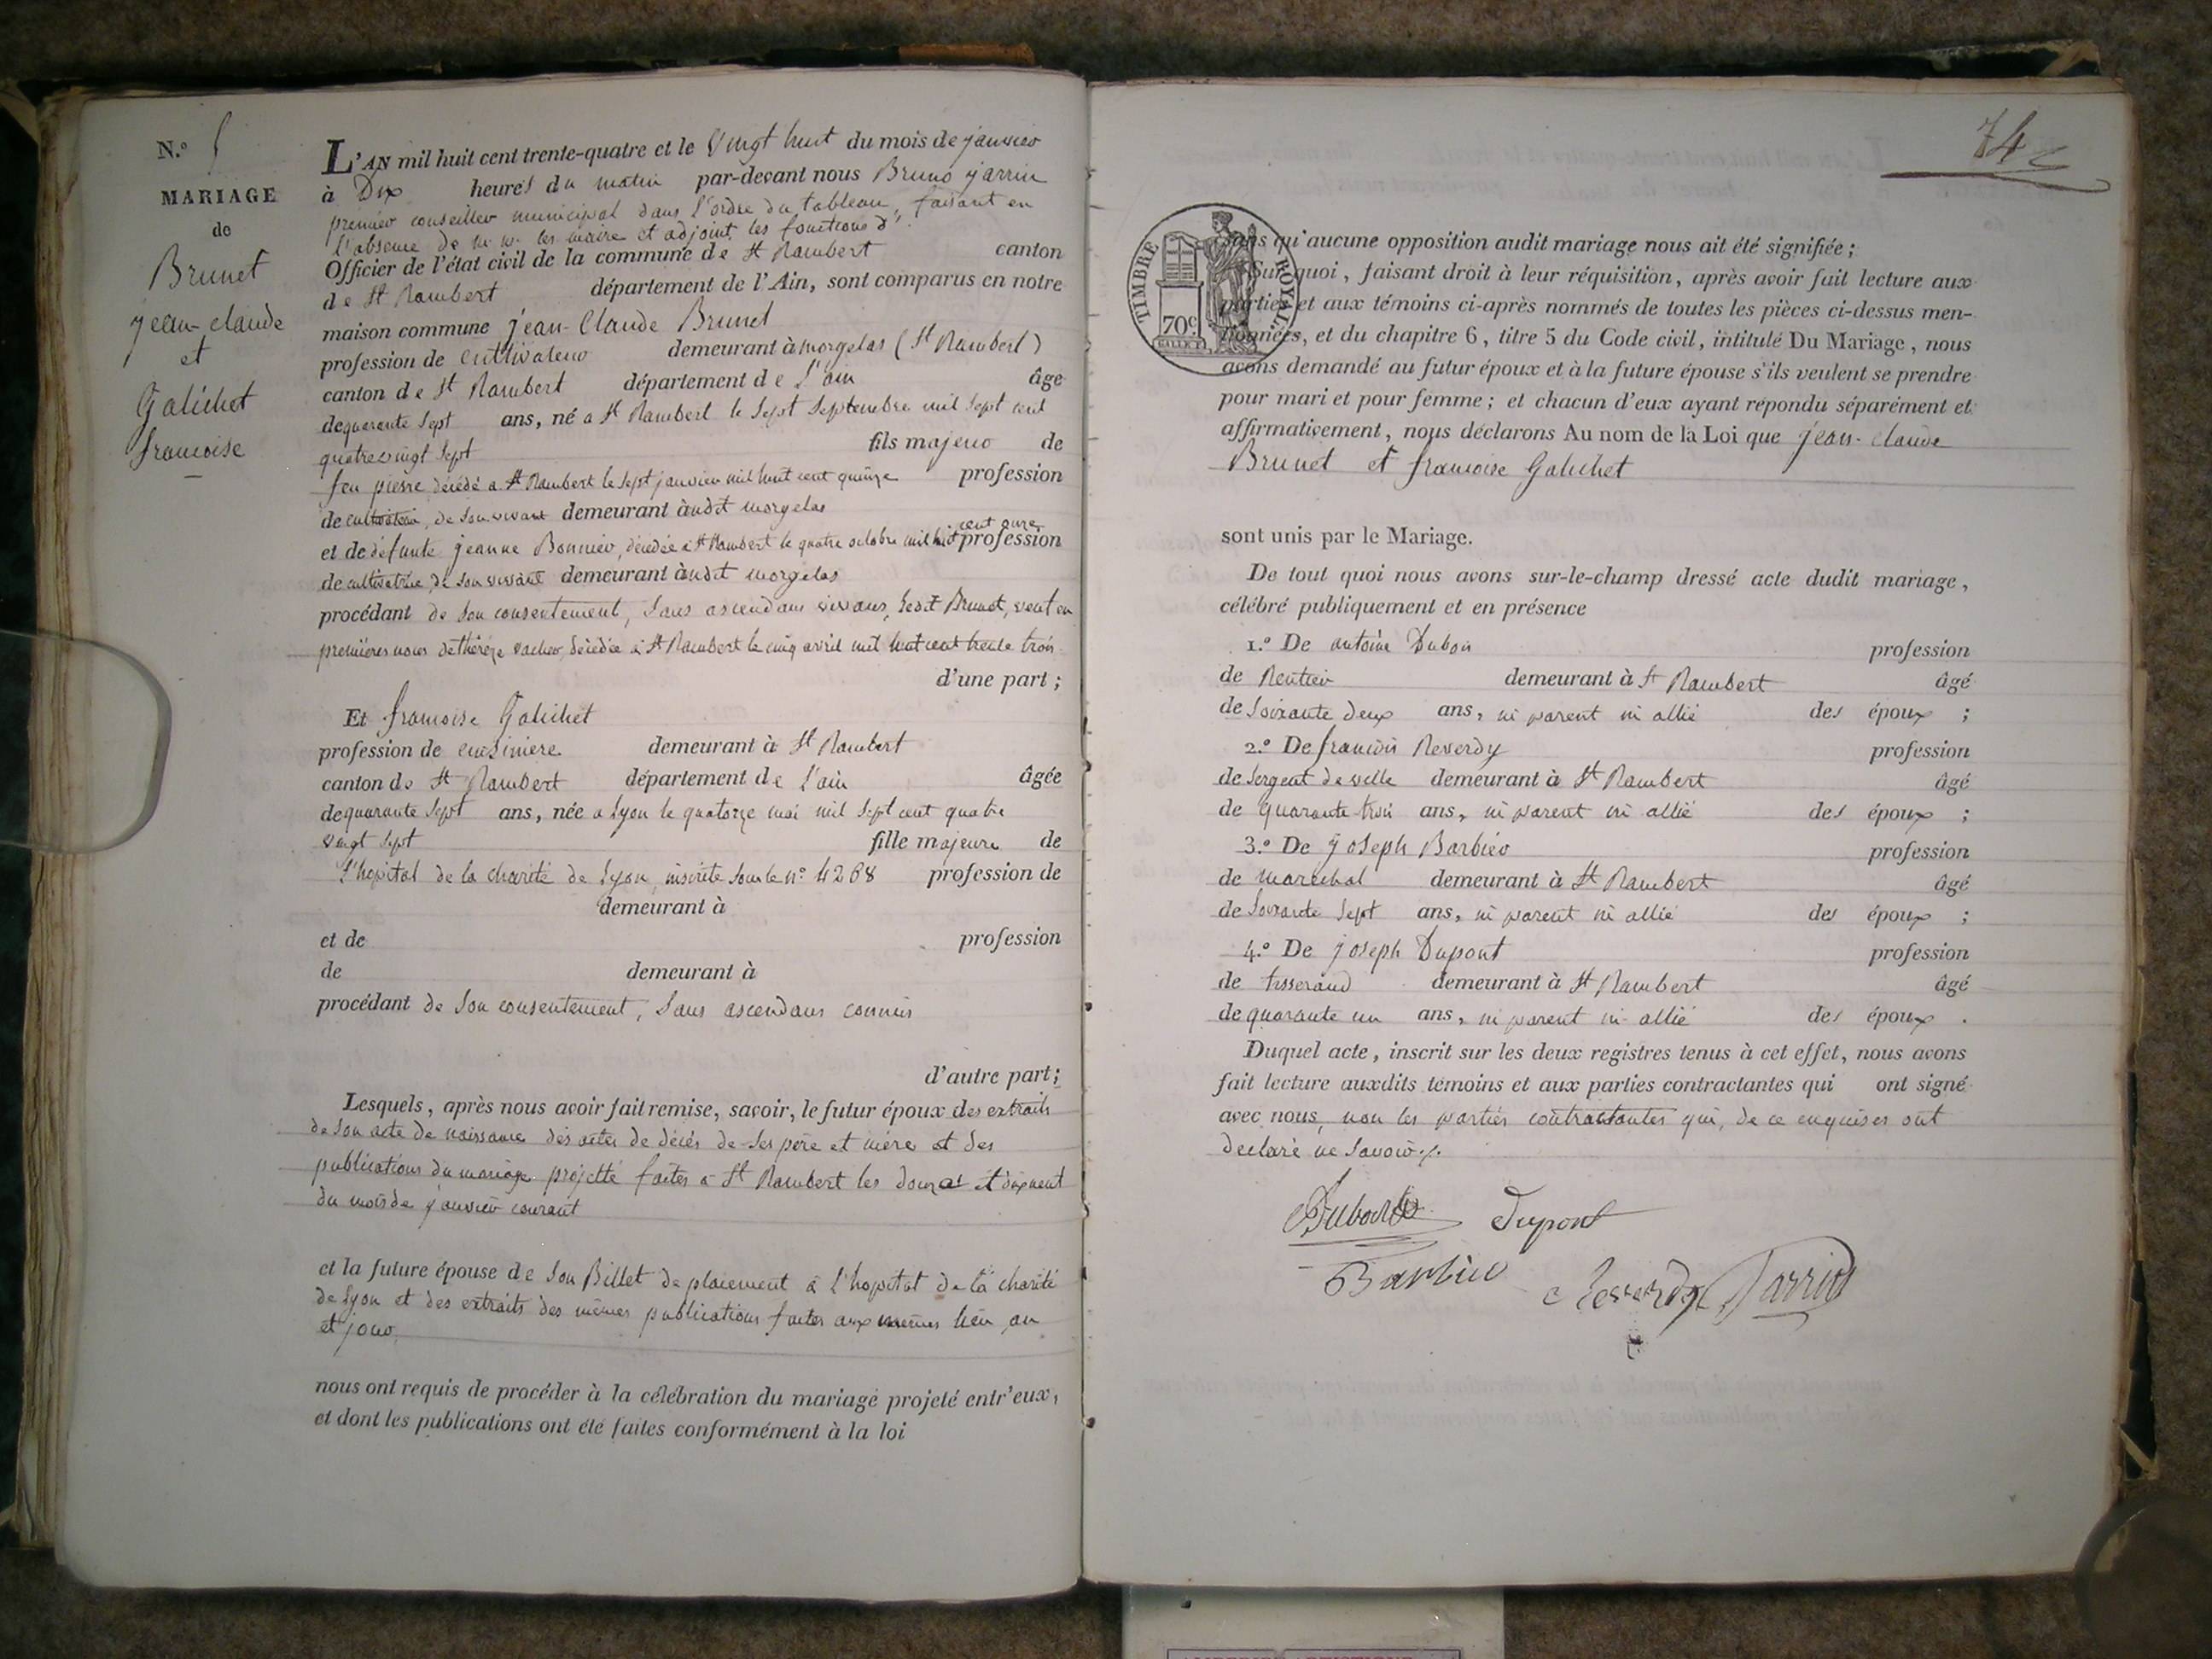 N.º 5
MARIAGE
de
Brunet
jean-claude
et
Galichet
francoise
L'AN mil huit cent trente-quatre et le vingt huit du mois de janvier
à Dix heures du matin par-devant nous Bruno jarrin
premier conseiller municipal dans l'ordre du tableau, faisant en
l'absence de m.m. les maire et adjoint les fonctions d'
Officier de l'état civil de la commune de St Rambert canton
de St Rambert département de l'Ain, sont comparus en notre
maison commune jean-Claude Brunet
profession de cultivateur demeurant à morgelas (St Rambert)
canton de St Rambert département de l'ain âge
de quarante sept ans, né a St Rambert le sept septembre mil sept cent
quatrevingt sept fils majeur de
feu pierre décédé a St Rambert le sept janvier mil huit cent quinze profession
de cultivateur, de son vivant demeurant àudit morgelas
et de défunte jeanne Bonnier, décédée à St Rambert le quatre octobre mil huit cent onze profession
de cultivatrice, de son vivant demeurant àudit morgelas
procédant de son consentement, sans ascendans vivans, ledit Brunet, veuf en
premières noces de thérèze vacher, décédée à St Rambert le cinq avril mil huit cent trente trois
d'une part ;
Et francoise Galichet
profession de cuisiniere demeurant à St Rambert
canton de St Rambert département de l'ain âgée
de quarante sept ans, née a Lyon le quatorze mai mil sept cent quatre
vingt sept fille majeure de
l'hopital de la charité de Lyon, inscrite sous le n.º 4268 profession de
demeurant à
et de profession
de demeurant à
procédant de son consentement, sans ascendans connus
d'autre part ;
Lesquels, après nous avoir fait remise, savoir, le futur époux des extraits
de son acte de naissance des actes de décès de ses père et mère et des
publications du mariage projetté faites à St Rambert les douze et dixneuf
du mois de janvier courant
et la future épouse de son Billet de placement à l'hopital de la charité
de Lyon et des extraits des mêmes publications faites aux mêmes lieu, an
et jour,
nous ont requis de procéder à la célébration du mariage projeté entr'eux,
et dont les publications ont été faites conformément à la loi
74
TIMBRE ROYAL
70c
sans qu'aucune opposition audit mariage nous ait été signifiée ;
Sur quoi, faisant droit à leur réquisition, après avoir fait lecture aux
parties et aux témoins ci-après nommés de toutes les pièces ci-dessus men-
tionnées, et du chapitre 6, titre 5 du Code civil, intitulé Du Mariage, nous
avons demandé au futur époux et à la future épouse s'ils veulent se prendre
pour mari et pour femme ; et chacun d'eux ayant répondu séparément et
affirmativement, nous déclarons Au nom de la Loi que jean-claude
Brunet et francoise Galichet
sont unis par le Mariage.
De tout quoi nous avons sur-le-champ dressé acte dudit mariage,
célébré publiquement et en présence
1.º De antoine Dubois profession
de Rentier demeurant à St Rambert âgé
de soixante deux ans, ni parent ni allié des époux ;
2.º De francois Reverdy profession
de sergent de ville demeurant à St Rambert âgé
de quarante-trois ans, ni parent ni allié des époux ;
3.º De joseph Barbier profession
de marechal demeurant à St Rambert âgé
de soixante sept ans, ni parent ni allié des époux ;
4.º De joseph Dupont profession
de tisserand demeurant à St Rambert âgé
de quarante un ans, ni parent ni allié des époux .
Duquel acte, inscrit sur les deux registres tenus à cet effet, nous avons
fait lecture auxdits témoins et aux parties contractantes qui ont signé
avec nous, non les parties contractantes qui, de ce enquises ont
déclaré ne savoir.
Dubois Dupont
Barbier Reverdy Jarrin